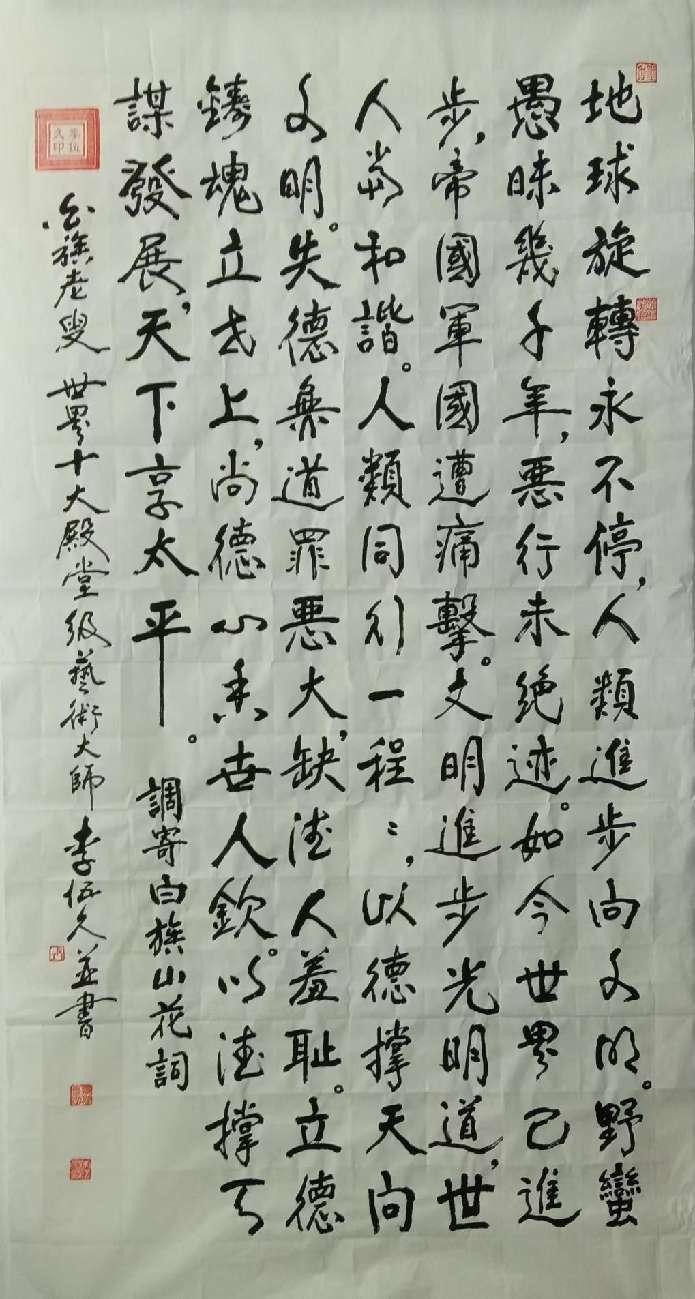 地球旋轉永不停,人類進步向文明。野蠻
愚昧幾千年,惡行未绝迹。如今世界已進
步,帝國軍國遭痛擊。文明進步光明道,世
人尚和諧。人類同行一程〻,以德撑天向
文明。失德無道罪惡大,缺德人羞耻。立德
鑄魂立志上,尚德心香世人欽。以德撑天
謀發展,天下享太平。
調寄白族山花詞
白族老叟 世界十大殿堂级藝術大師 李伍久並書
李伍久印